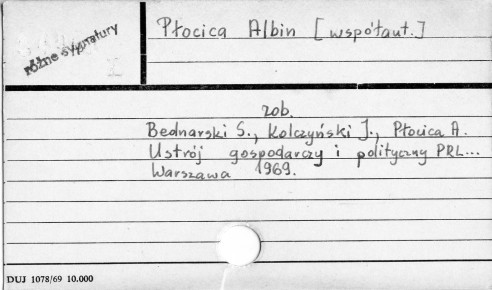 Płocica Albin [współaut.]
różne sygnatury
zob.
Bednarski S., Kolczyński J., Płocica A.
Ustrój gospodarczy i polityczny PRL...
Warszawa 1969.
DUJ 1078/69 10.000